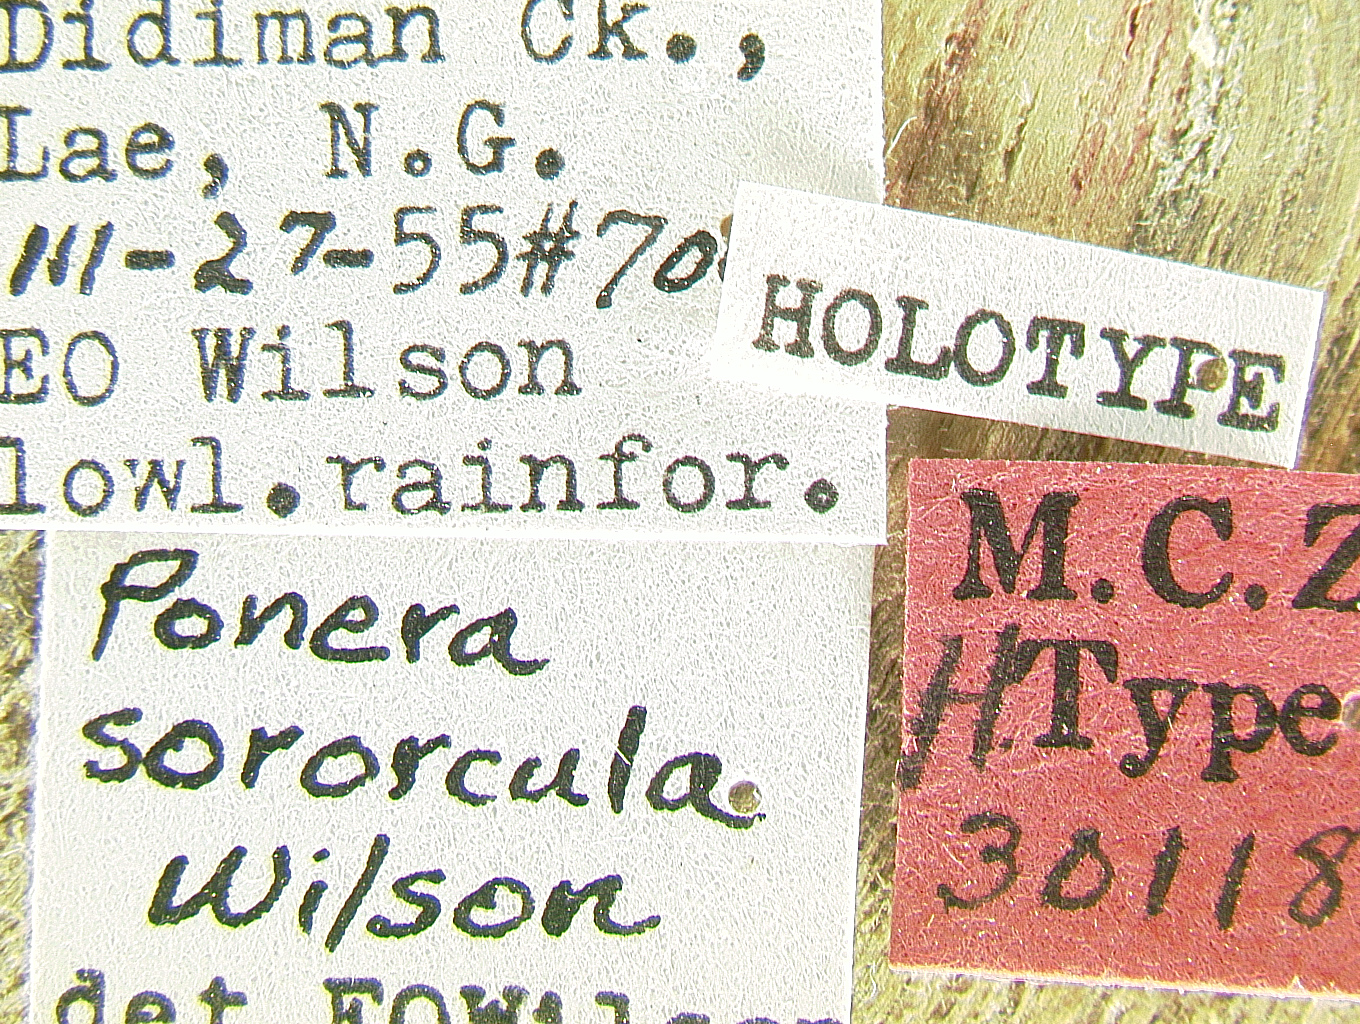 Didiman Ck.,
Lae, N.G.
III-27-55#70
EO Wilson
lowl.rainfor.
HOLOTYPE
M.C.Z
HType
30118
Ponera
sororcula
Wilson
det EOWilson